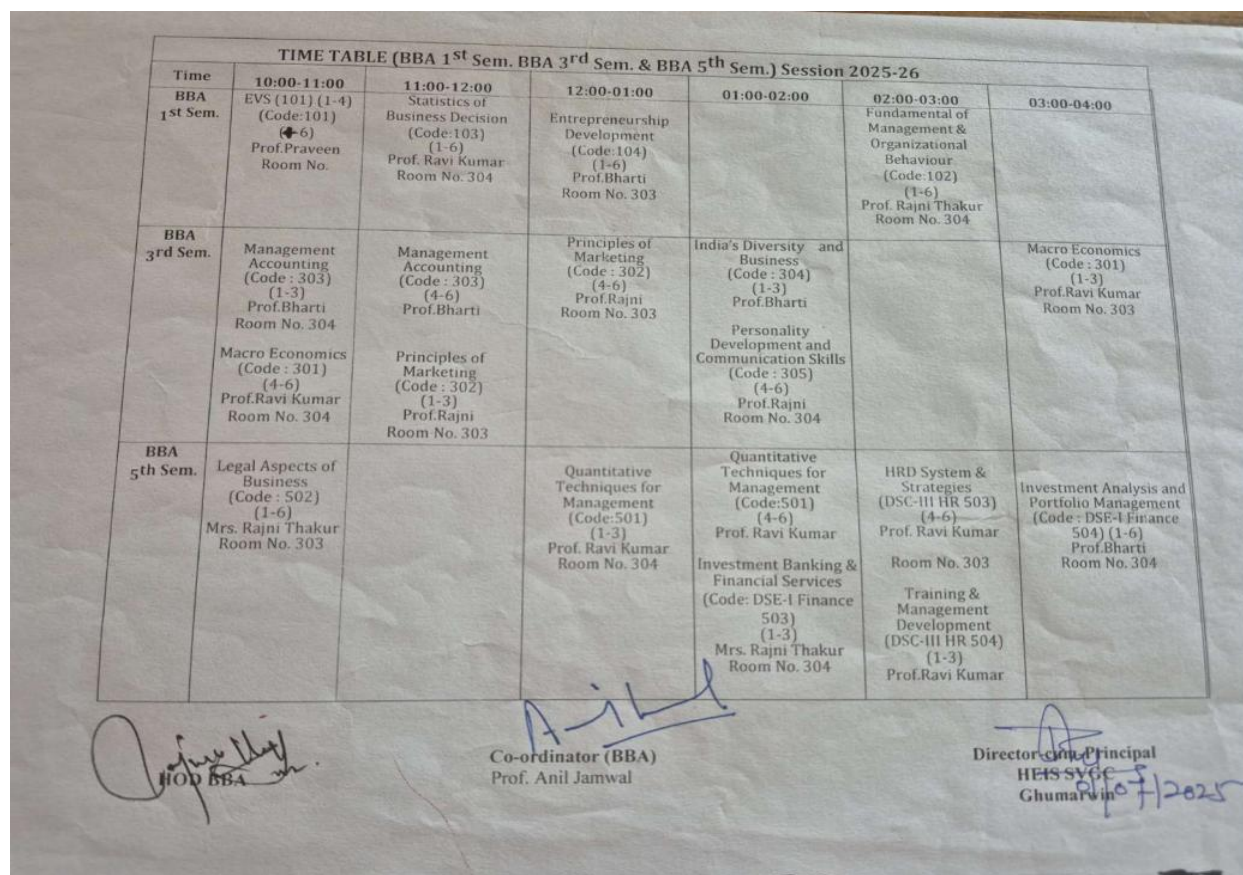 TIME TABLE (BBA 1st Sem. BBA 3rd Sem. & BBA 5th Sem.) Session 2025-26
Time
10:00-11:00
11:00-12:00
12:00-01:00
01:00-02:00
02:00-03:00
03:00-04:00
BBA
1st Sem.
EVS (101) (1-4)
(Code:101)
(-6)
Prof.Praveen
Room No.
Statistics of
Business Decision
(Code:103)
(1-6)
Prof. Ravi Kumar
Room No. 304
Entrepreneurship
Development
(Code:104)
(1-6)
Prof.Bharti
Room No. 303
Fundamental of
Management &
Organizational
Behaviour
(Code:102)
(1-6)
Prof. Rajni Thakur
Room No. 304
BBA
3rd Sem.
Management
Accounting
(Code : 303)
(1-3)
Prof.Bharti
Room No. 304
Macro Economics
(Code : 301)
(4-6)
Prof.Ravi Kumar
Room No. 304
Management
Accounting
(Code : 303)
(4-6)
Prof.Bharti
Principles of
Marketing
(Code : 302)
(1-3)
Prof.Rajni
Room No. 303
Principles of
Marketing
(Code : 302)
(4-6)
Prof.Rajni
Room No. 303
India's Diversity and
Business
(Code : 304)
(1-3)
Prof.Bharti
Personality
Development and
Communication Skills
(Code : 305)
(4-6)
Prof.Rajni
Room No. 304
Macro Economics
(Code : 301)
(1-3)
Prof.Ravi Kumar
Room No. 303
BBA
5th Sem.
Legal Aspects of
Business
(Code : 502)
(1-6)
Mrs. Rajni Thakur
Room No. 303
Quantitative
Techniques for
Management
(Code:501)
(1-3)
Prof. Ravi Kumar
Room No. 304
Quantitative
Techniques for
Management
(Code:501)
(4-6)
Prof. Ravi Kumar
Investment Banking &
Financial Services
(Code: DSE-I Finance
503)
(1-3)
Mrs. Rajni Thakur
Room No. 304
HRD System &
Strategies
(DSC-III HR 503)
(4-6)
Prof. Ravi Kumar
Room No. 303
Training &
Management
Development
(DSC-III HR 504)
(1-3)
Prof.Ravi Kumar
Investment Analysis and
Portfolio Management
(Code : DSE-I Finance
504) (1-6)
Prof.Bharti
Room No. 304
HOD BBA
Anil
Co-ordinator (BBA)
Prof. Anil Jamwal
Director-cum-Principal
HEIS SVGC
Ghumarwin
01/07/2025